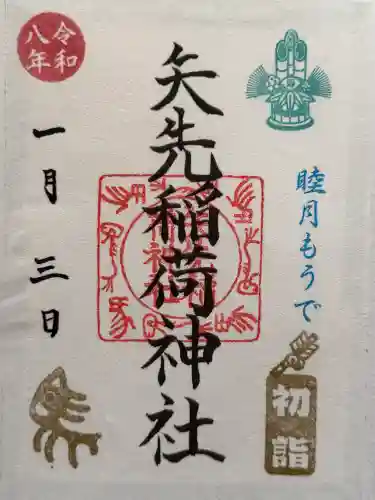 睦月もうで
初詣
矢先稲荷神社
令和
八年
一月三日